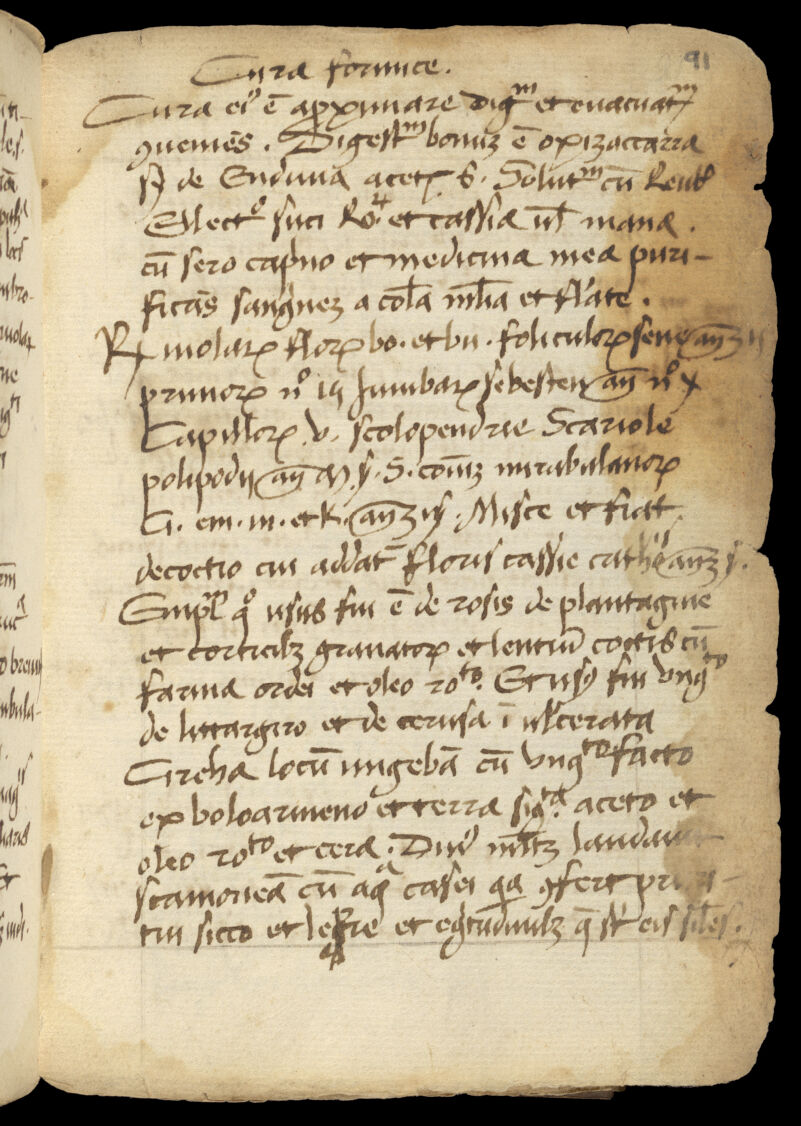 91
Cura formice.
Cura ei9 ē approximare dig.m et euacuat
9ueniēs. Digest.m bonuz ē oxizaccarra
sy de Endiuia acet 6. Solut.m cū Reub
Elect.o suci Ro. et cassia ul mana.
cū sero capno et medicina mea puri-
ficās sanguinez a cola mlīa et flāte.
Rx uiolarꝝ florꝝ bo. et bu. foliculorꝝ sene añ ʒ
prunorꝝ n.o Juiubarꝝ sebesten añ n.o x
Capillorꝝ v. scolopendrie Scariole
polipodij añ M. Corticuz mirabulanorꝝ
C. em. in. et k. añ ʒ ij. Misce et fiat
decoctio cui addat floris cassie añ ʒ
Emplm q.o usus fui ē de rosis de plantagine
et corticibz granatorꝝ et lentiū coctis cū
farina ordei et oleo ro.to. Et usus fui ung.to
de littargiro et de cerusa ī ulcerata
Circha locū ungebā cū ung.to facto
ex boloarmeno et terra sig.ta aceto et
oleo ro.to et cera. mltz
scamoneā cū aq.a casei qa 9fert
tui sicco et lepre et egritudinibz q̄ st eis siles.